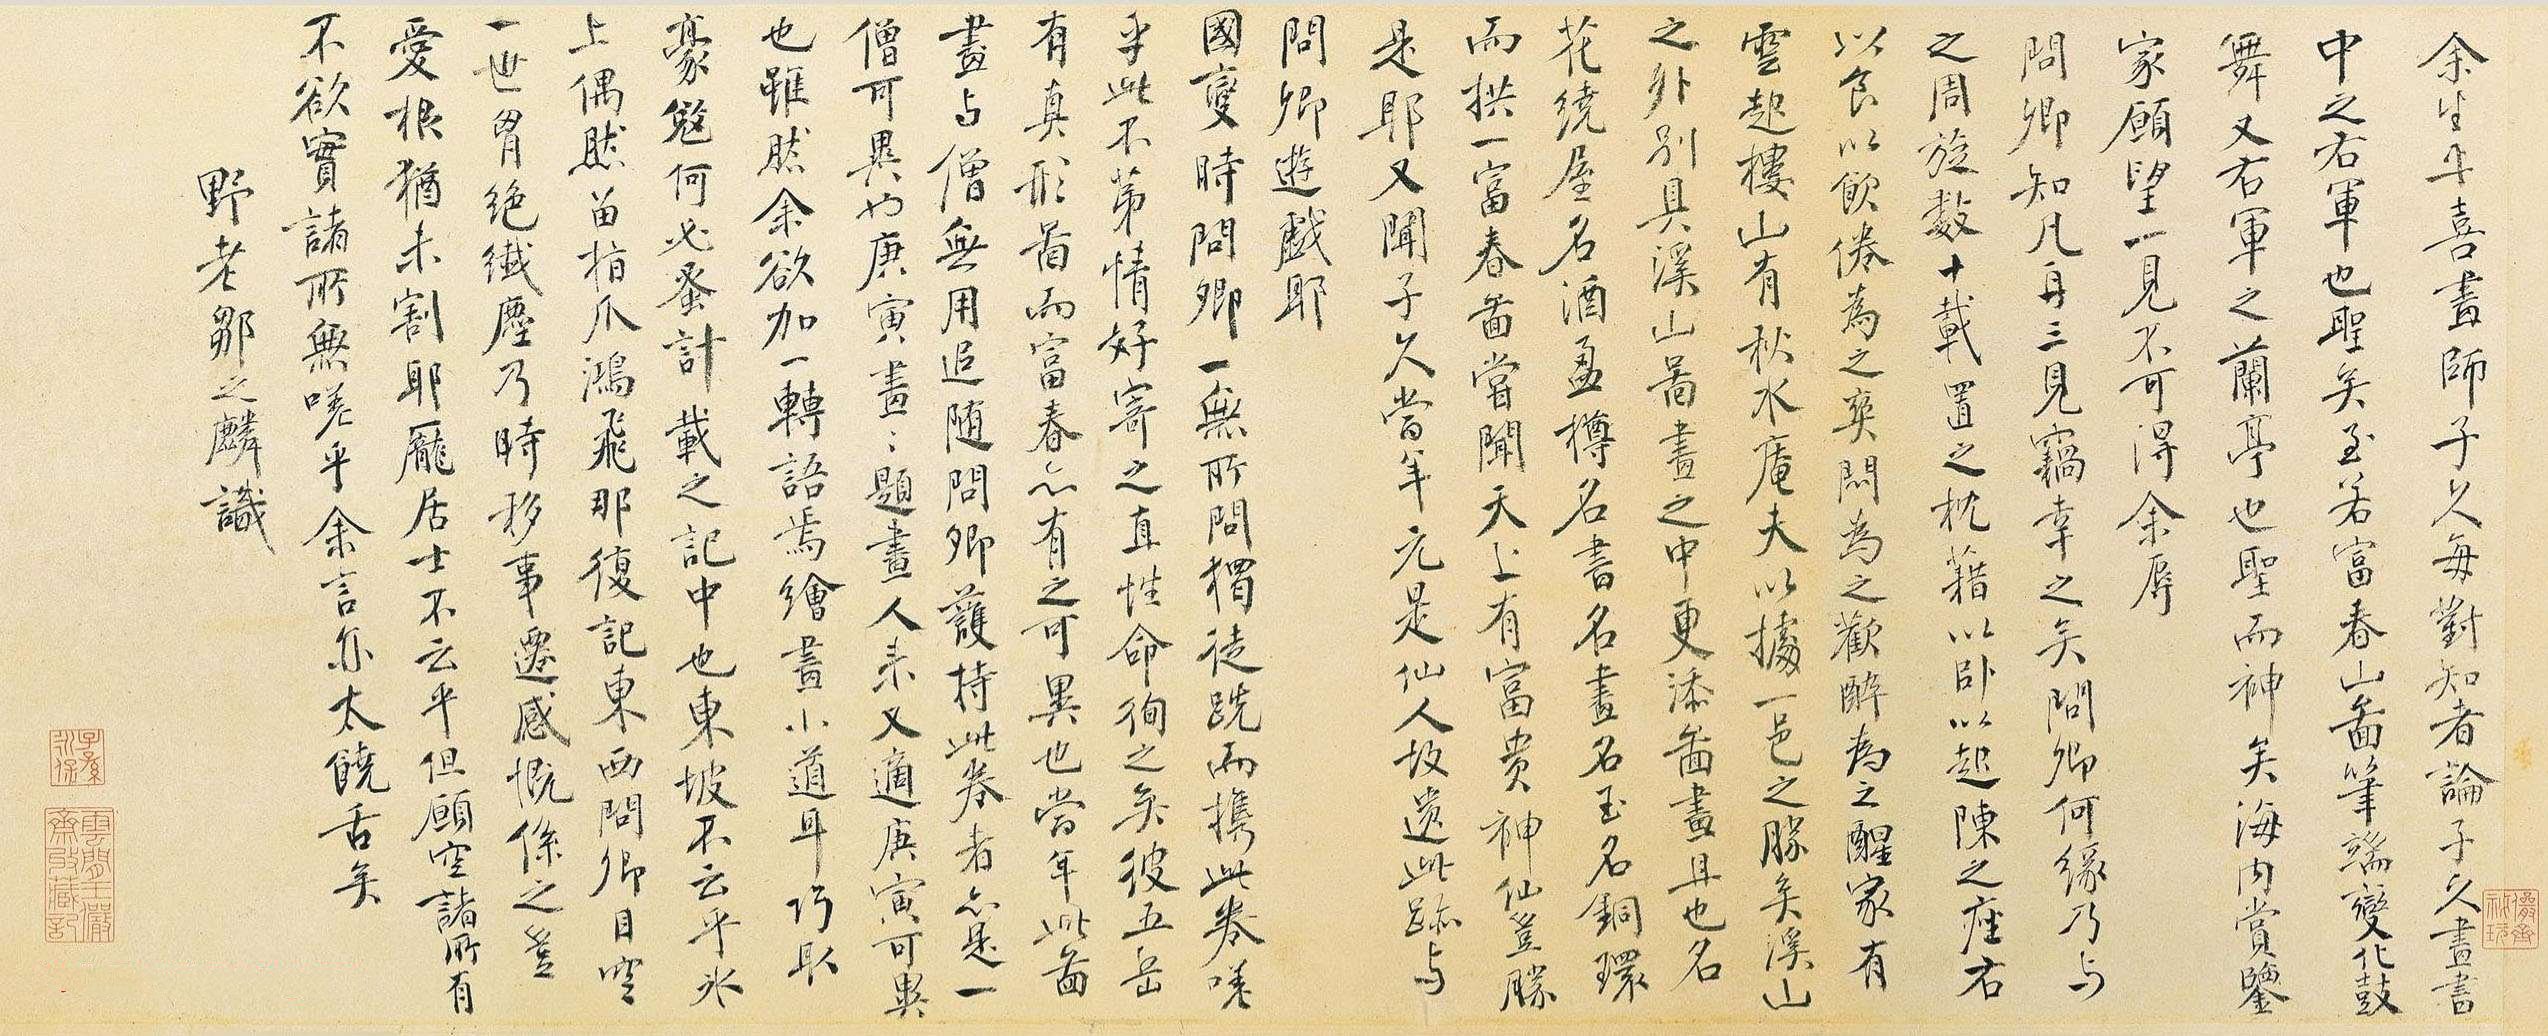 余生平喜畫師子久每對知者論子久畫書
中之右軍也聖矣至若富春山圖筆端變化鼓
舞又右軍之蘭亭也聖而神矣海内賞鑒
家願望一見不可得余辱
問卿知凡再三見竊幸之矣問卿何緣乃与
之周旋数十載置之枕藉以卧以起陳之座右
以食以飲倦為之爽悶為之歡醉為之醒家有
雲起樓山有秋水庵夫以據一邑之勝矣溪山
之外别具溪山啚畫之中更添啚畫且也名
花繞屋名酒盈樽名書名畫名玉名銅環
而拱一富春啚嘗聞天上有富贵神仙豈勝
是耶又聞子久當年元是仙人故遗此跡与
問卿遊戲耶
國變時問卿一無所問獨徒跣而携此卷嗟
乎此不第情好寄之直性命徇之矣彼五岳
有真形啚而富春亦有之可異也當年此啚
畫与僧無用追随問卿護持此卷者亦是一
僧可異也庚寅畫畫題畫人来又適庚寅可異
也雖然余欲加一轉語焉繪畫小道耳巧取
豪奪何必蚤計載之記中也東坡不云乎冰
上偶然留指爪鴻飛那復記東西問卿目空
一世胷绝纖塵乃時移事遷感慨係之豈
愛根猶未割耶龎居士不云乎但願空諸所有
不欲實諸所無嗟乎余言亦太饒舌矣
野老鄒之麟識
子孫永保
雲間王儼齋收藏記
儼齋秘玩